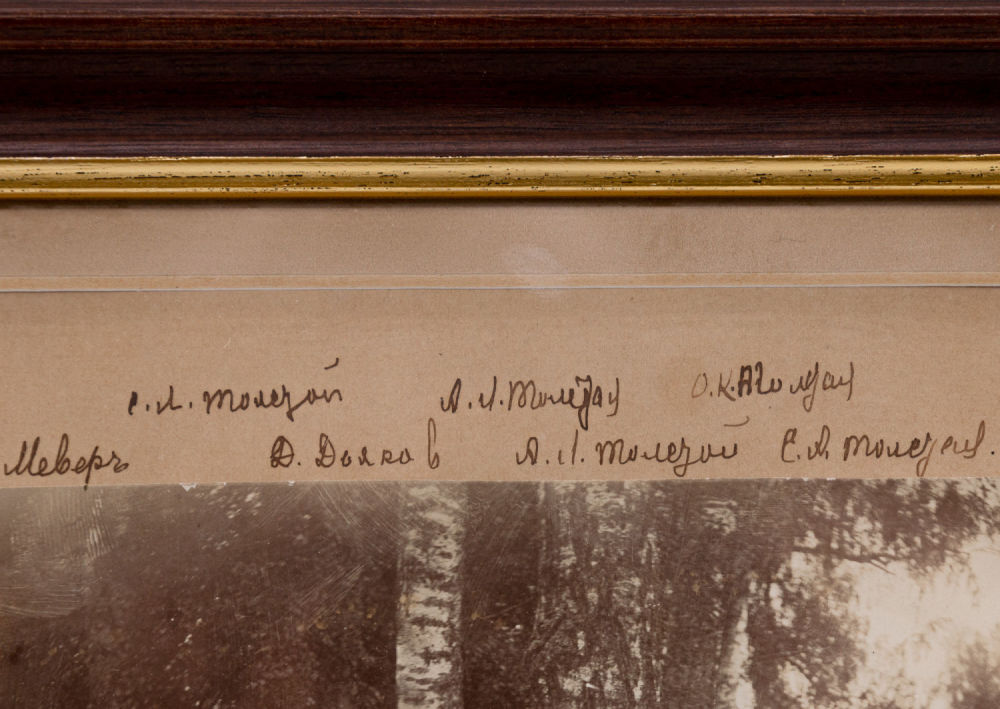 С. Л. Толстой А. Л. Толстая О. К. Толстая
Меверъ Д. Дьяков А. Л. Толстой С. А. Толстая.